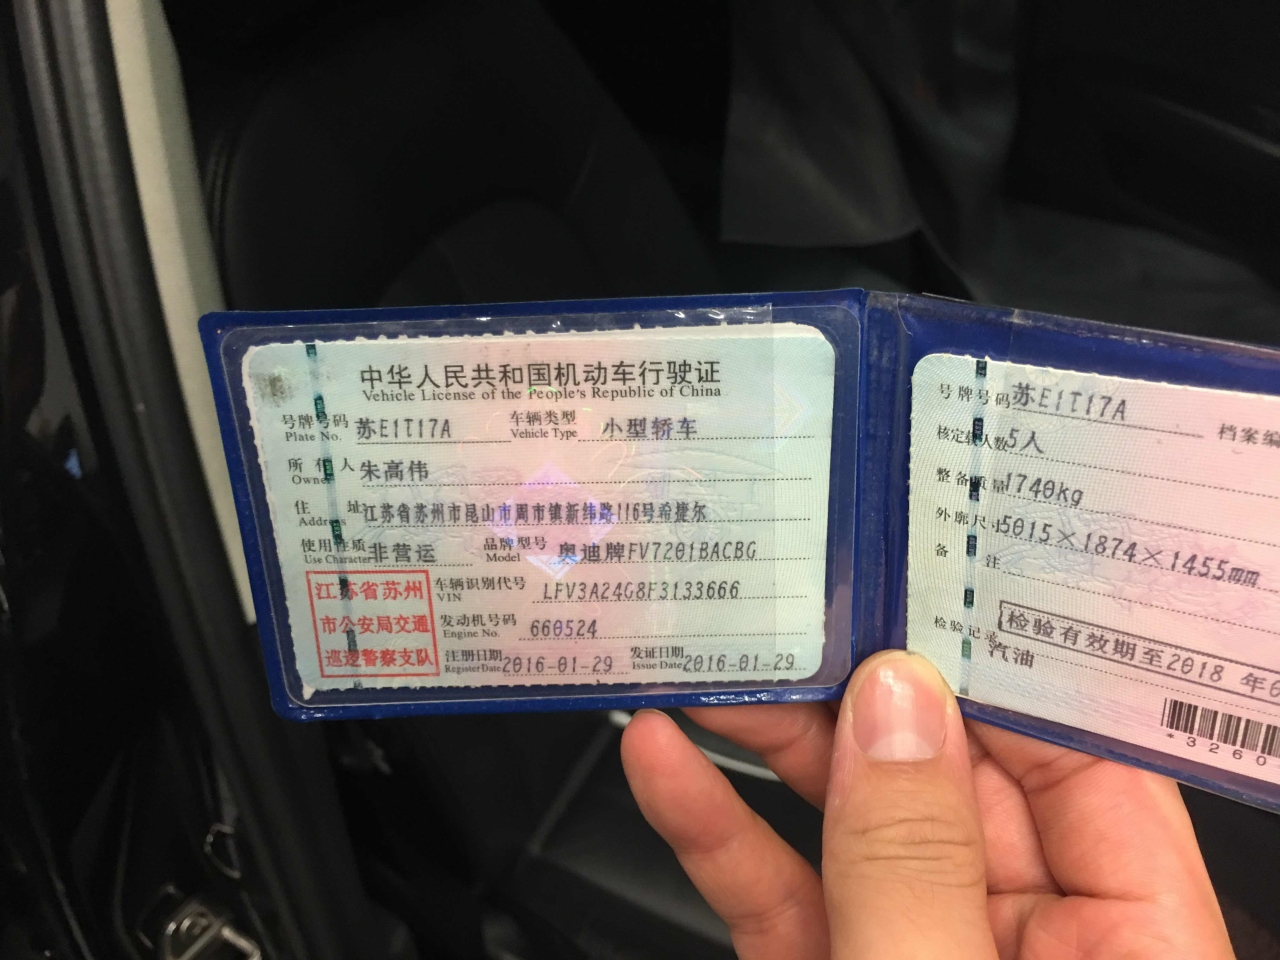 中华人民共和国机动车行驶证
Vehicle License of the People's Republic of China
号牌号码 苏E1T17A 车辆类型 小型轿车
Plate No. Vehicle Type
所有人 朱高伟
Owner
住址 江苏省苏州市昆山市周市镇新纬路116号哈捷尔
Address
使用性质 非营运 品牌型号 奥迪牌FV7201BACBG
Use Character Model
江苏省苏州
市公安局交通
巡逻警察支队
车辆识别代号 LFV3A24G8F3133666
VIN
发动机号码 660524
Engine No.
注册日期 2016-01-29 发证日期 2016-01-29
Register Date Issue Date
号牌号码 苏E1T17A 档案编
核定载人数 5人
整备质量 1740kg
外廓尺寸 5015×1874×1455mm
备注
检验有效期至2018 年
检验记录
汽油
*3260